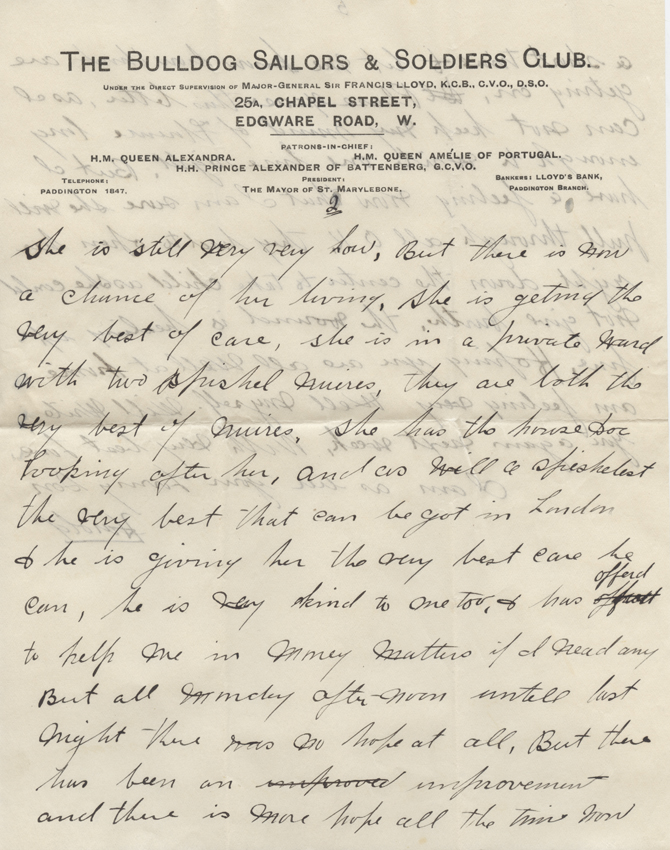 THE BULLDOG SAILORS & SOLDIERS CLUB.
UNDER THE DIRECT SUPERVISION OF MAJOR-GENERAL SIR FRANCIS LLOYD, K.C.B., C.V.O., D.S.O.
25A, CHAPEL STREET,
EDGWARE ROAD, W.
PATRONS-IN-CHIEF:
H.M. QUEEN ALEXANDRA. H.M. QUEEN AMÉLIE OF PORTUGAL.
H.H. PRINCE ALEXANDER OF BATTENBERG, G.C.V.O.
TELEPHONE: PADDINGTON 1847.
PRESIDENT: THE MAYOR OF ST. MARYLEBONE.
BANKERS: LLOYD'S BANK, PADDINGTON BRANCH.
2
She is still very very low, But there is now
a chance of her living, she is getting the
very best of care, she is in a private ward
with two spishel nurses, they are both the
very best of nurses, she has the house Doc
looking after her, and as well a spishelest
the very best that can be got in London
& he is giving her the very best care he
can, he is very kind to me too, & has offerd
to help me in money matters if I need any
But all Monday after-noon untell last
night there was no hope at all, But there
has been an improved improvement
and there is more hope all the time now